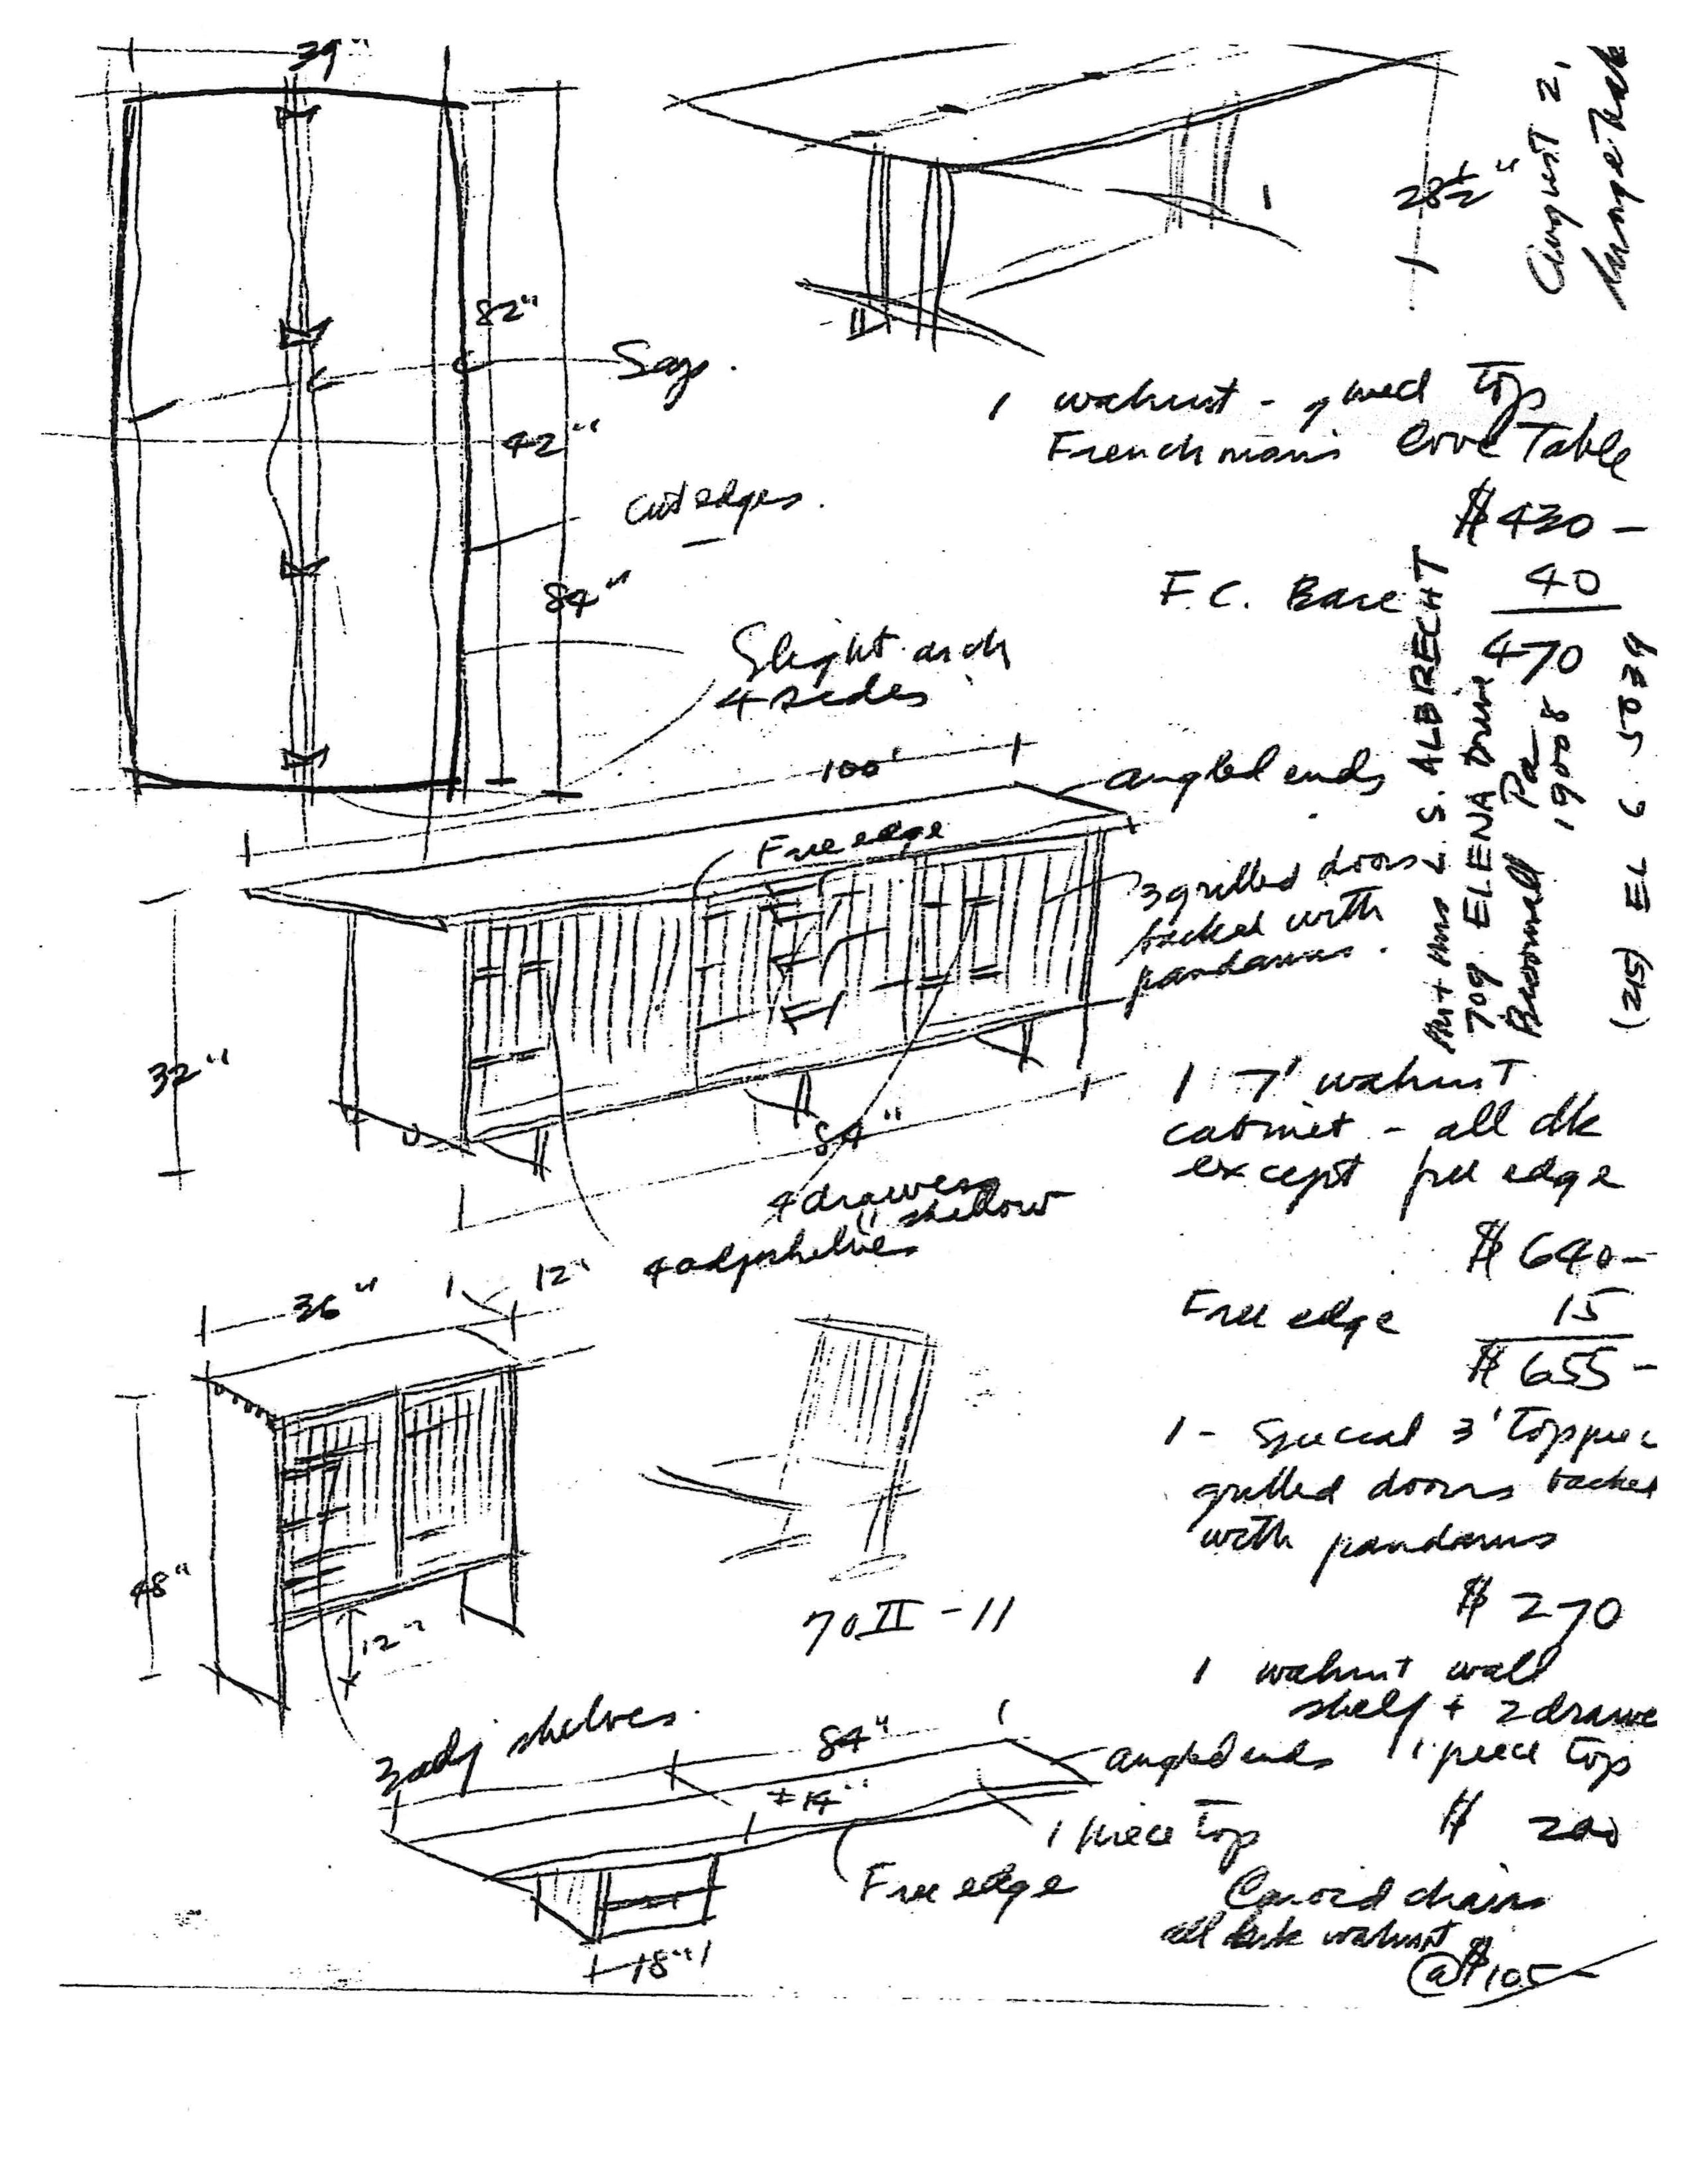 39"
82"
Sap.
42"
cut edges.
84"
Slight arch
4 sides
28½"
August 2,
1 walnut - joined Top
Frenchman's Cove Table
$430 -
F.C. Base 40
470
Mr + Mrs L. S. ALBRECHT
709 ELENA Drive
Broomall Pa
19008
(215) EL 6 5039
100"
angled ends
Free edge
3 grilled doors
backed with
pandanus.
32"
84"
4 drawers
shallow
4 adj shelves
1 7' walnut
cabinet - all dk
except free edge
$640 -
Free edge 15
$655 -
36"
12"
48"
12"
3 adj shelves.
70 II - 11
1 - Special 3' Top piec
grilled doors backed
with pandanus
$270
1 walnut wall
shelf + 2 drawe
1 piece top
$ 200
84"
±14"
angled ends
1 piece Top
Free edge
18"
Conoid chairs
all dark walnut
@ $105 -